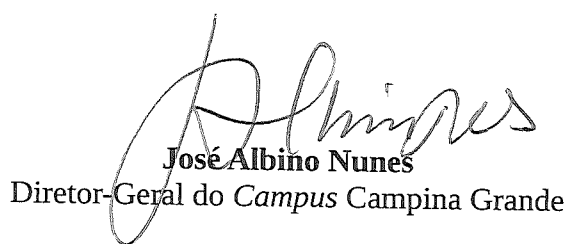 José Albino Nunes
Diretor-Geral do Campus Campina Grande